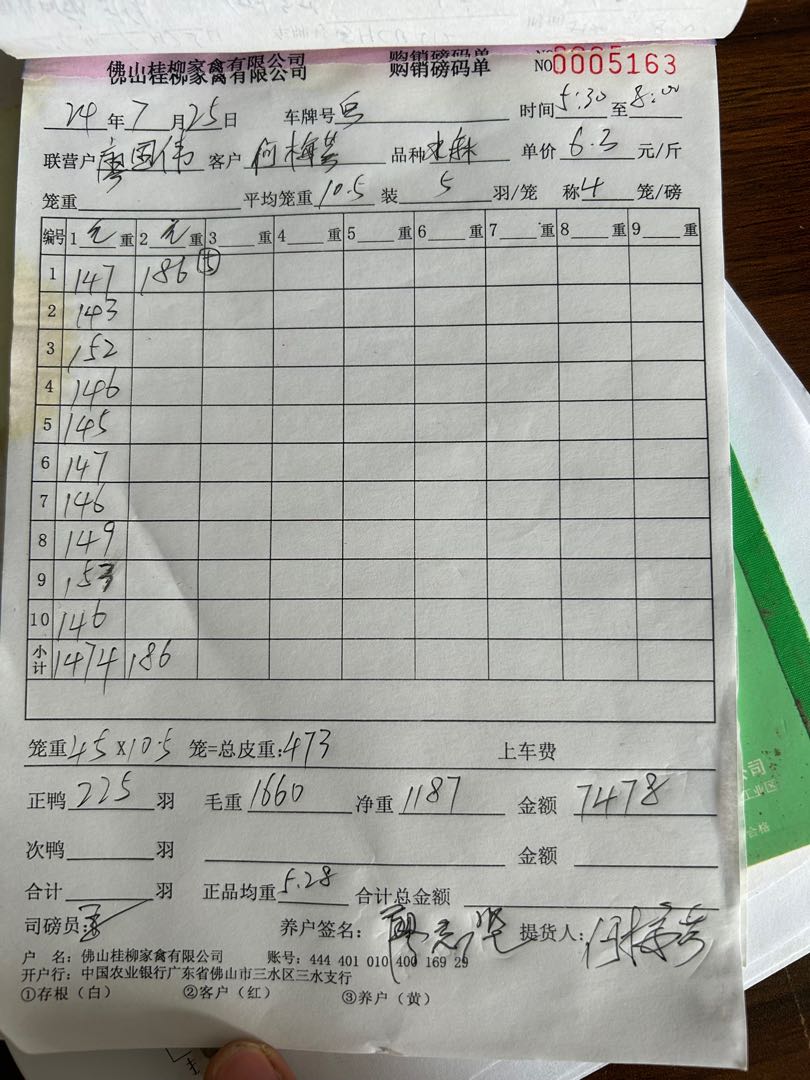 佛山桂柳家禽有限公司 购销磅码单 NO0005163
24年7月25日 车牌号 时间5:30至8:00
联营户廖国伟 客户何梅芳 品种 单价6.3元/斤
笼重 平均笼重10.5 装5羽/笼 称4笼/磅
编号 1 重 2 重 3 重 4 重 5 重 6 重 7 重 8 重 9 重
1 147 186 ⑤
2 143
3 152
4 146
5 145
6 147
7 146
8 149
9 153
10 146
小计 1474 186
笼重45×10.5 笼=总皮重:473 上车费
正鸭225羽 毛重1660 净重1187 金额7478
次鸭 羽 金额
合计 羽 正品均重5.28 合计总金额
司磅员: 养户签名:廖志坚 提货人:何梅芳
户 名:佛山桂柳家禽有限公司 账号:444 401 010 400 169 29
开户行:中国农业银行广东省佛山市三水区三水支行
①存根(白) ②客户(红) ③养户(黄)
公司
工业区
合格